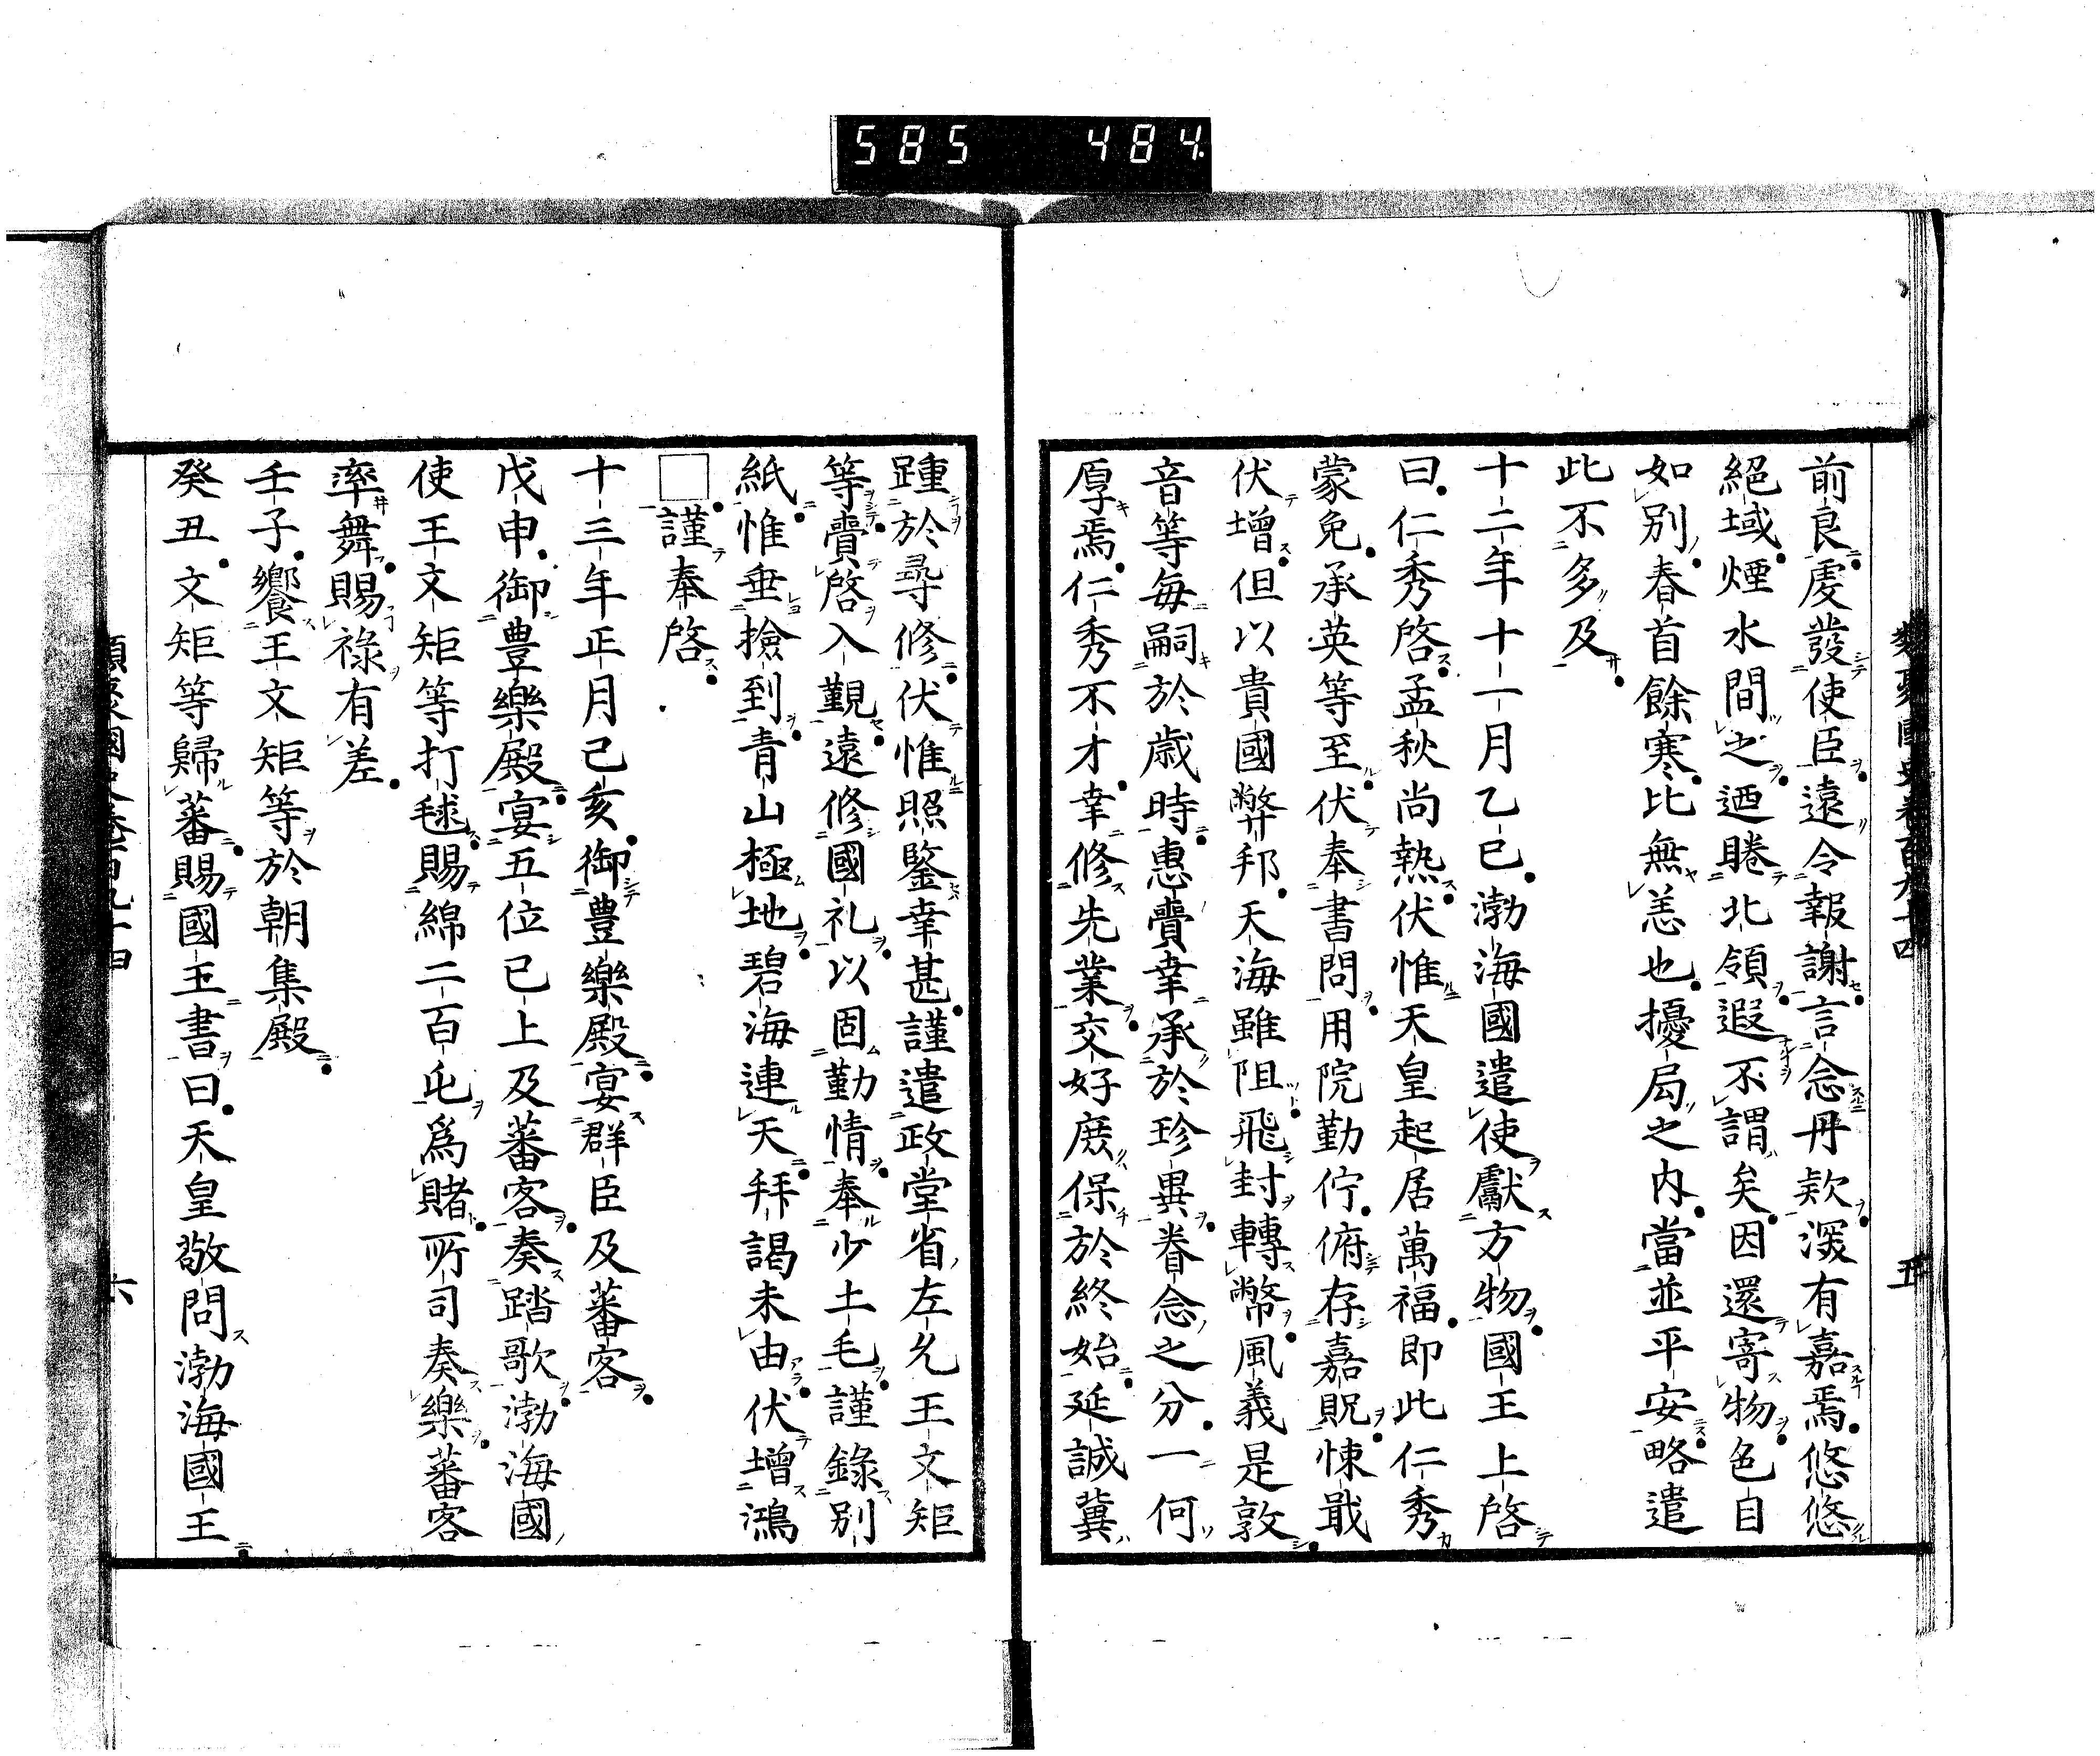 585 484
類聚國史卷百九十四 五
前良䖍發使臣遠令報謝言念丹欵深有嘉焉悠悠
絕域煙水間之迺睠北領遐不謂矣因還寄物色目
如別春首餘寒比無恙也擾局之内當並平安略遣
此不多及
十二年十一月乙巳渤海國遣使獻方物國王上啓
曰仁秀啓孟秋尚熱伏惟天皇起居萬福即此仁秀
蒙免承英等至伏奉書問用院勤佇俯存嘉貺悚戢
伏增但以貴國弊邦天海雖阻飛封轉幣風義是敦
音等每嗣於歲時惠賷幸承於珍異眷念之分一何
厚焉仁秀不才幸修先業交好庶保於終始延誠冀
踵於尋修伏惟照鑒幸甚謹遣政堂省左允王文矩
等賷啓入覲遠修國礼以固勤情奉少土毛謹錄別
紙惟垂撿到青山極地碧海連天拜謁未由伏增鴻
□謹奉啓
十三年正月己亥御豊樂殿宴群臣及蕃客
戊申御豊樂殿宴五位已上及蕃客奏踏歌渤海國
使王文矩等打毬賜綿二百屯爲賭所司奏樂蕃客
率舞賜祿有差
壬子饗王文矩等於朝集殿
癸丑文矩等歸蕃賜國王書曰天皇敬問渤海國王
類聚國史卷百九十四 六